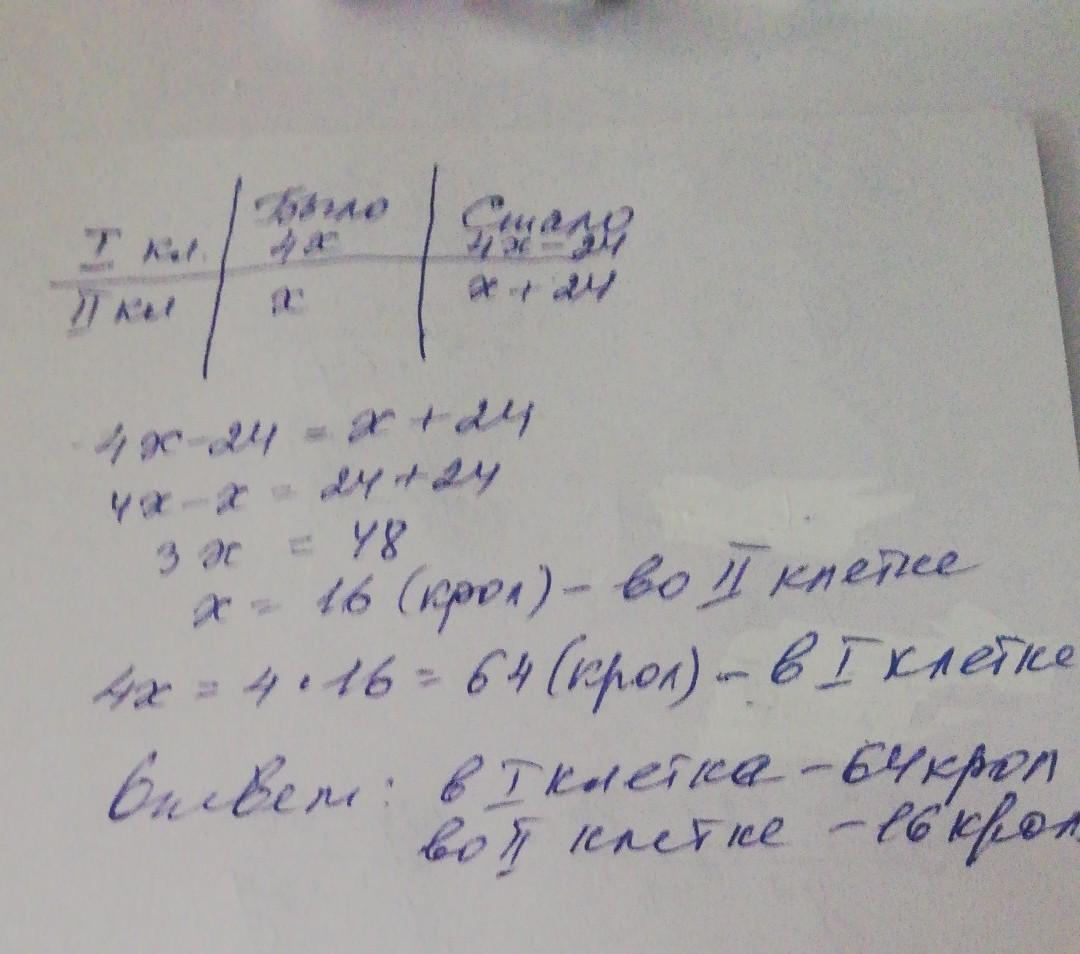 Было Стало
I кл. 4х 4х-24
II кл х х+24
4х-24 = х+24
4х-х = 24+24
3х = 48
х = 16 (крол) - во II клетке
4х = 4·16 = 64 (крол) - в I клетке
Ответ: в I клетка - 64 крол
во II клетке - 16 крол.